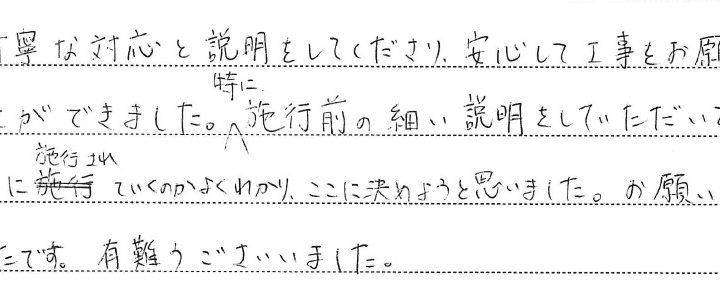 丁寧な対応と説明をしてくださり、安心して工事をお願
とができました。特に施行前の細い説明をしていただいて
に施行されていくのかよくわかり、ここに決めようと思いました。お願い
たです。有難うございました。